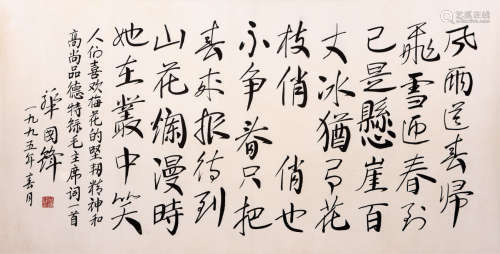 风雨送春歸
飛雪迎春到
已是懸崖百
丈冰猶有花
枝俏 俏也
不争春只把
春来报待到
山花爛漫時
她在叢中笑
人们喜欢梅花的坚韧精神和
高尚品德特録毛主席词一首
華国锋
一九九五年春月